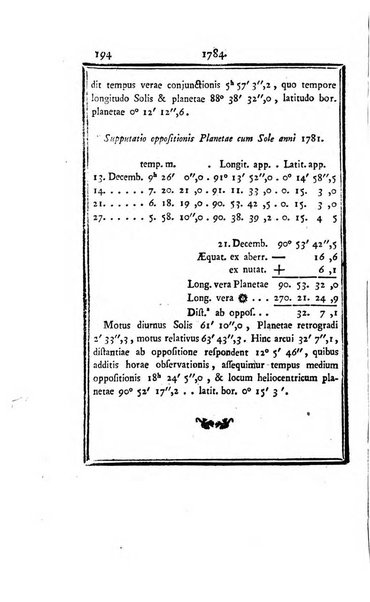 194 1784.
dit tempus verae conjunctionis 5ʰ 57′ 3″,2, quo tempore
longitudo Solis & planetae 88° 38′ 32″,0, latitudo bor.
planetae 0° 12′ 12″,6.
Supputatio oppositionis Planetae cum Sole anni 1781.
temp. m. . Longit. app. . Latit. app.
13. Decemb. 9ʰ 26′ 0″,0 . 91° 13′ 52″,0 . 0° 14′ 58″,5
14. . . . . . . 7. 20. 21 ,0 . 91. 11. 33 ,0 . 0. 15. 3 ,0
21. . . . . . . 6. 18. 19 ,0 . 90. 53. 42 ,5 . 0. 15. 3 ,0
27. . . . . . . 5. 58. 10″,0 . 90. 38. 39 ,2 . 0. 15. 4 5
21. Decemb. 90° 53′ 42″,5
Æquat. ex aberr. — 16 ,6
ex nutat. + 6 ,1
Long. vera Planetae 90. 53. 32 ,0
Long. vera ☉ . . . 270. 21. 24 ,9
Dist.ª ab oppos. . . 32. 7 ,1
Motus diurnus Solis 61′ 10″,0, Planetae retrogradi
2′ 33″,3, motus relativus 63′ 43″,3. Hinc arcui 32′ 7″,1,
distantiae ab oppositione respondent 12° 5′ 46″, quibus
additis horae observationis, assequimur tempus medium
oppositionis 18ʰ 24′ 5″,0, & locum heliocentricum pla-
netae 90° 52′ 17″,2 . . latit. bor. 0° 15′ 3″.